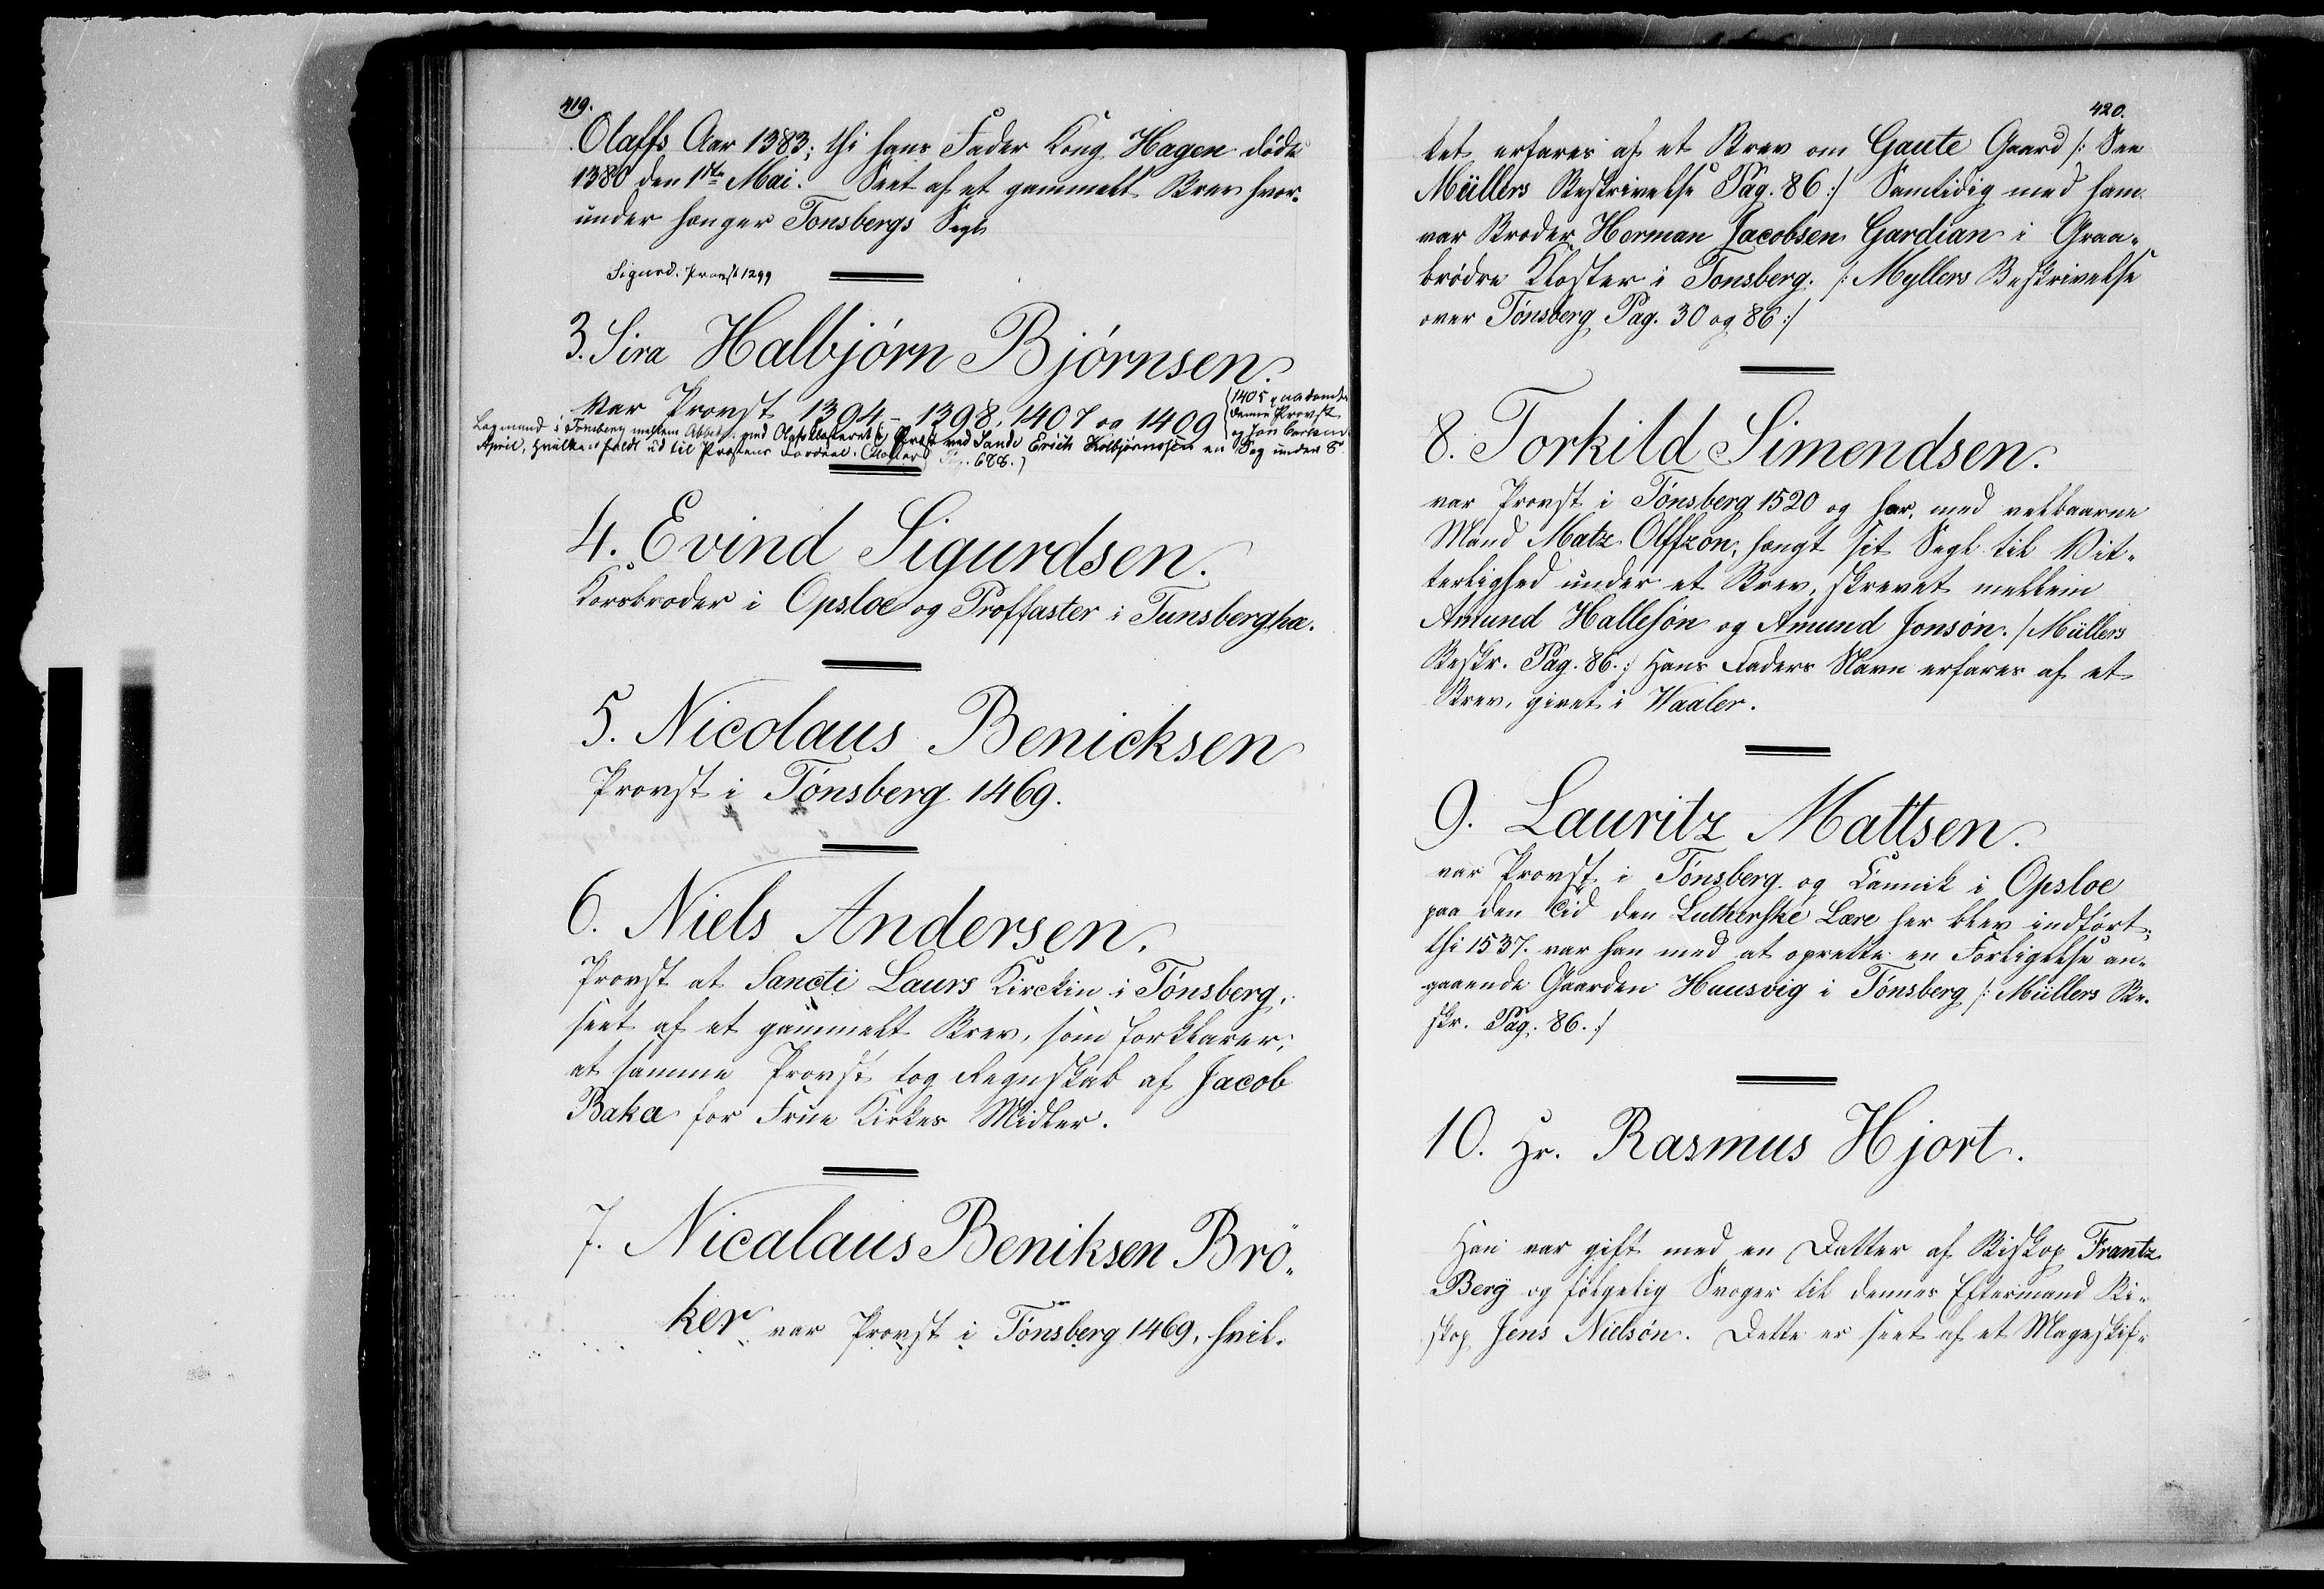 419.
Olaffs Aar 1383; thi hans Fader Kong Hagen døde
1380 den 1ste Mai. Seet af et gammelt Brev hvor-
under hænger Tonsbergs Segl
Sigurd. Provst 1299
3. Sira Halbjørn Bjørnsen.
Var Provst 1394-1398, 1407 og 1409
(1405 paadømte
denne Provst
og Jon
Lagmand i Tønsberg mellem Abbeden ved Olafsklosteret og Præst ved Sande Erich Kolbjørnssøn en Sag under 8
April, hvilken faldt ud til Præstens Fordeel. Pag. 688.)
4. Evind Sigurdsen.
Korsbroder i Opsloe og Proffaster i Tunsbergha.
5. Nicolaus Benicksen
Provst i Tönsberg 1469.
6. Niels Andersen.
Provst at Sancti Laurs Kirckin i Tönsberg,
seet af et gammelt Brev, som forklarer,
at samme Provst tog Regnskab af Jacob
Baka for Frue Kirkes Midler.
7. Nicalaus Beniksen Brö-
ker var Provst i Tönsberg 1469, hvil-
420.
ket erfares af et Brev om Gaute Gaard /: See
Müllers Beskrivelse Pag. 86:/ Samtidig med ham
var Broder Herman Jacobsen Gardian i Graa-
brödre Kloster i Tonsberg. /: Myllers Beskrivelse
over Tönsberg Pag. 30 og 86:/
8. Torkild Simendsen.
var Provst i Tönsberg 1520 og har, med velbaarne
Mand Matz Olffzon, hengt sit Segl til Vit-
terlighed under et Brev, skrevet mellem
Amund Hallesön og Amund Jonsön. /: Müllers
Beskr. Pag. 86.:/ Hans Faders Navn erfares af et
Brev, givet i Waaler.
9. Lauritz Mattsen.
var Provst i Tönsberg og Cannik i Opsloe
paa den Tid den Lutherske Lære her blev indfört;
thi 1537. var han med at oprette en Forligelse an-
gaaende Gaarden Huusvig i Tönsberg /: Müllers Be-
skr. Pag. 86.:/
10. Hr. Rasmus Hjort.
Han var gift med en Datter af Biskop Frantz
Berg og fölgelig Svoger til dennes Eftermand Bi-
skop Jens Nielsön. Dette er seet af et Mageskif-